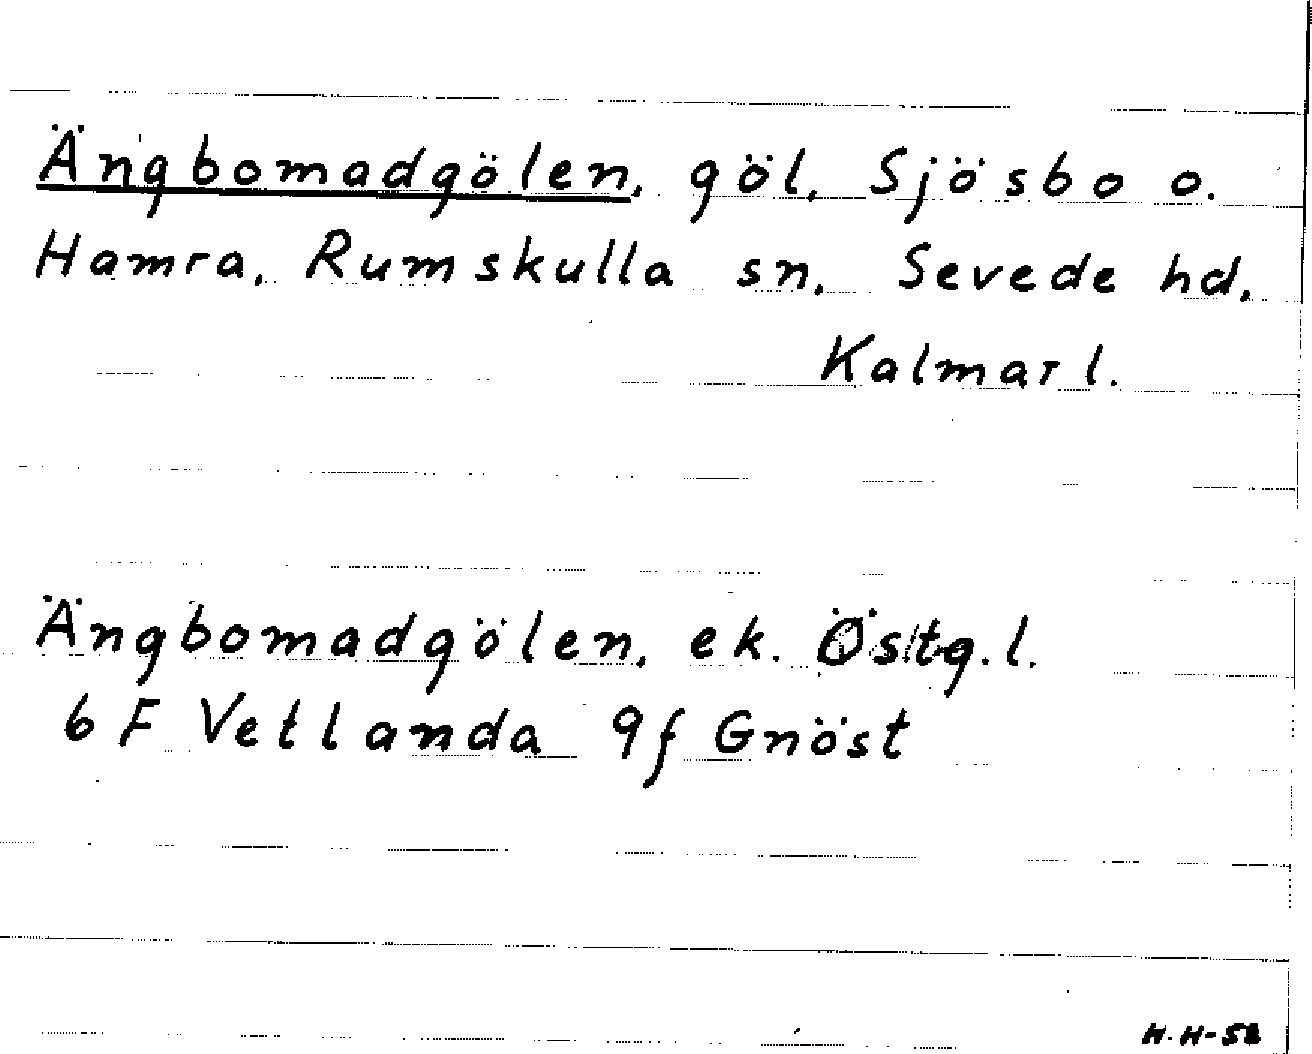 Ängbomadgölen, göl, Sjösbo o.
Hamra, Rumskulla sn, Sevede hd,
Kalmar l.
Ängbomadgölen, ek. Östg.l.
6 F Vetlanda 9f Gnöst
H.H-58